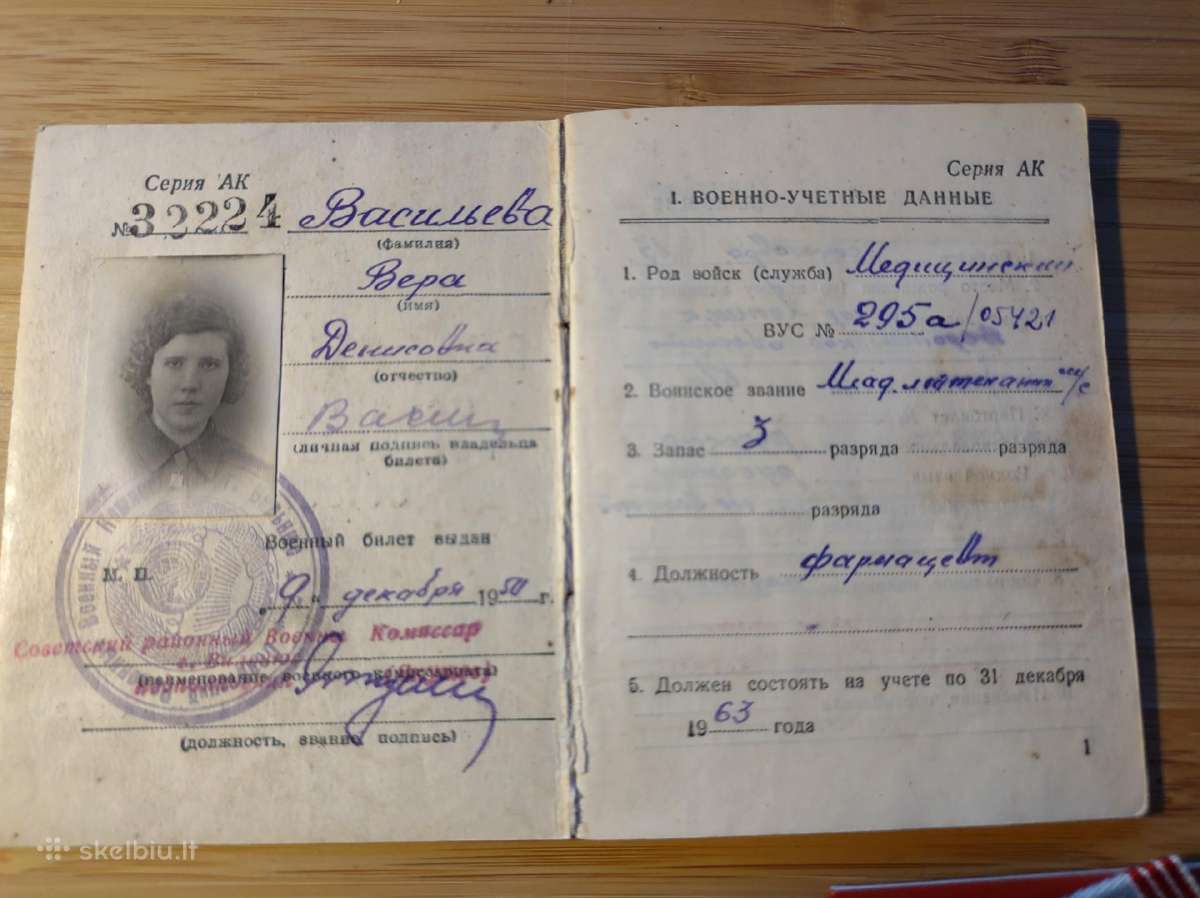 Серия АК
№ 32224 Васильева
(фамилия)
Вера
(имя)
Денисовна
(отчество)
(личная подпись владельца
билета)
Военный билет выдан
М. П.
„9“ декабря 1950 г.
Советский районный Военный Комиссар
(наименование военного комиссариата)
(должность, звание, подпись)
Серия АК
I. ВОЕННО-УЧЕТНЫЕ ДАННЫЕ
1. Род войск (служба) Медицинский
ВУС № 295а/05421
2. Воинское звание Млад. лейтенант м/с
3. Запас 3 разряда разряда
разряда
4. Должность фармацевт
5. Должен состоять на учете по 31 декабря
1963 года
1
skelbiu.lt